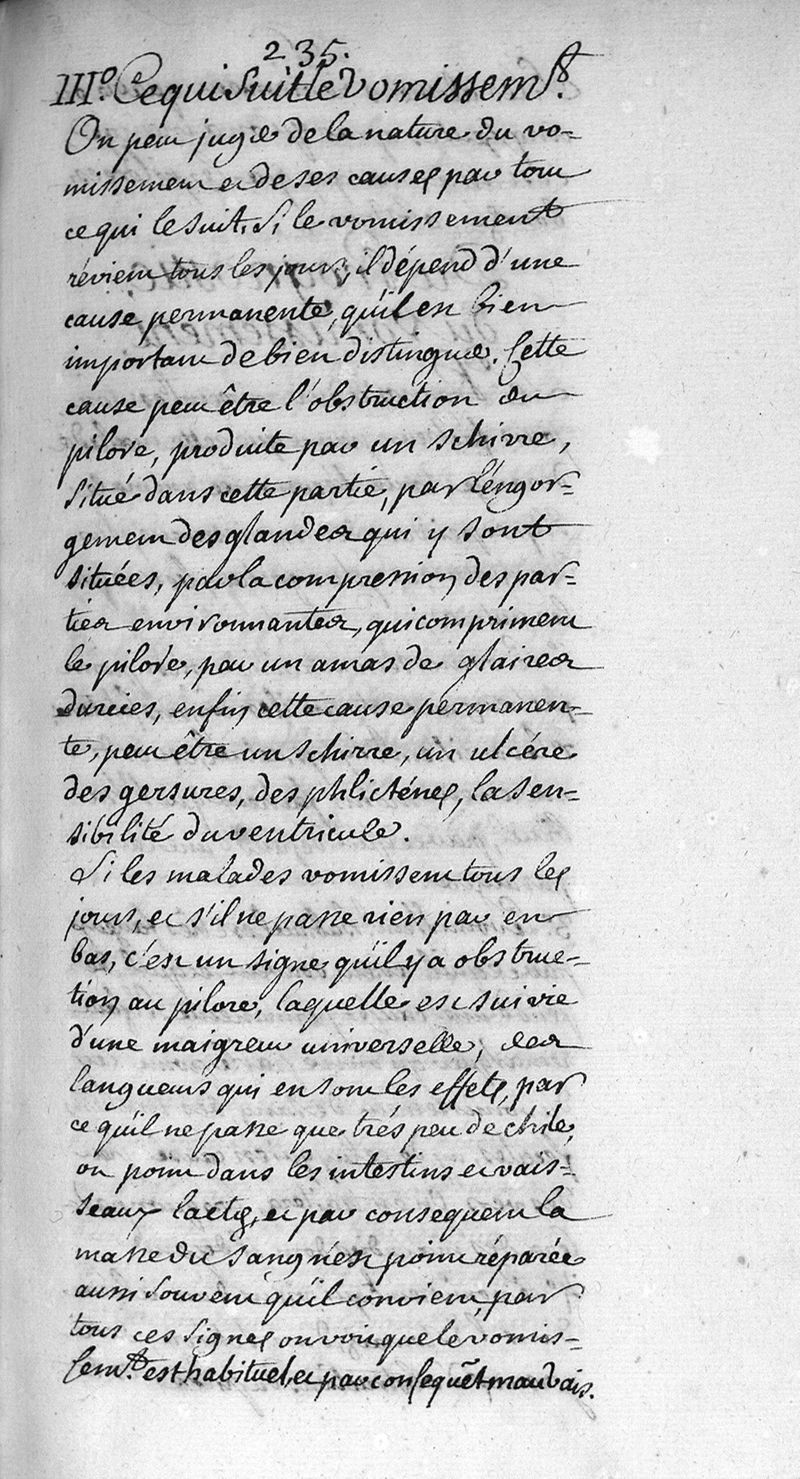 235.
III.º Ce qui suit le vomissem.t
On peut juger de la nature du vo-
missement et de ses causes par tout
ce qui le suit. Si le vomissement
révient tous les jours, il dépend d'une
cause permanente, qu'il est bien
important de bien distinguer. Cette
cause peut être l'obstruction du
pilore, produite par un schirre,
situé dans cette partie, par l'éngor-
gement des glandes qui y sont
situées, par la compression des par-
ties environnantes, qui compriment
le pilore, par un amas de glaires
durcies, enfin cette cause permanen-
te, peut être un schirre, un ulcére
des gersures, des phlicténes, la sen-
sibilité du ventricule.
Si les malades vomissent tous les
jours, et s'il ne passe rien par en
bas, c'est un signe qu'il y a obstruc-
tion au pilore, laquelle est suivie
d'une maigreur universelle, des
langueurs qui en sont les effets, par
ce qu'il ne passe que trés peu de chile,
ou point dans les intestins et vais-
seaux lactés, et par consequent la
masse du sang n'est point réparée
aussi souvent qu'il convient, par
tous ces signes on voit que le vomis-
sem.t est habituel, et par consequēt mauvais.